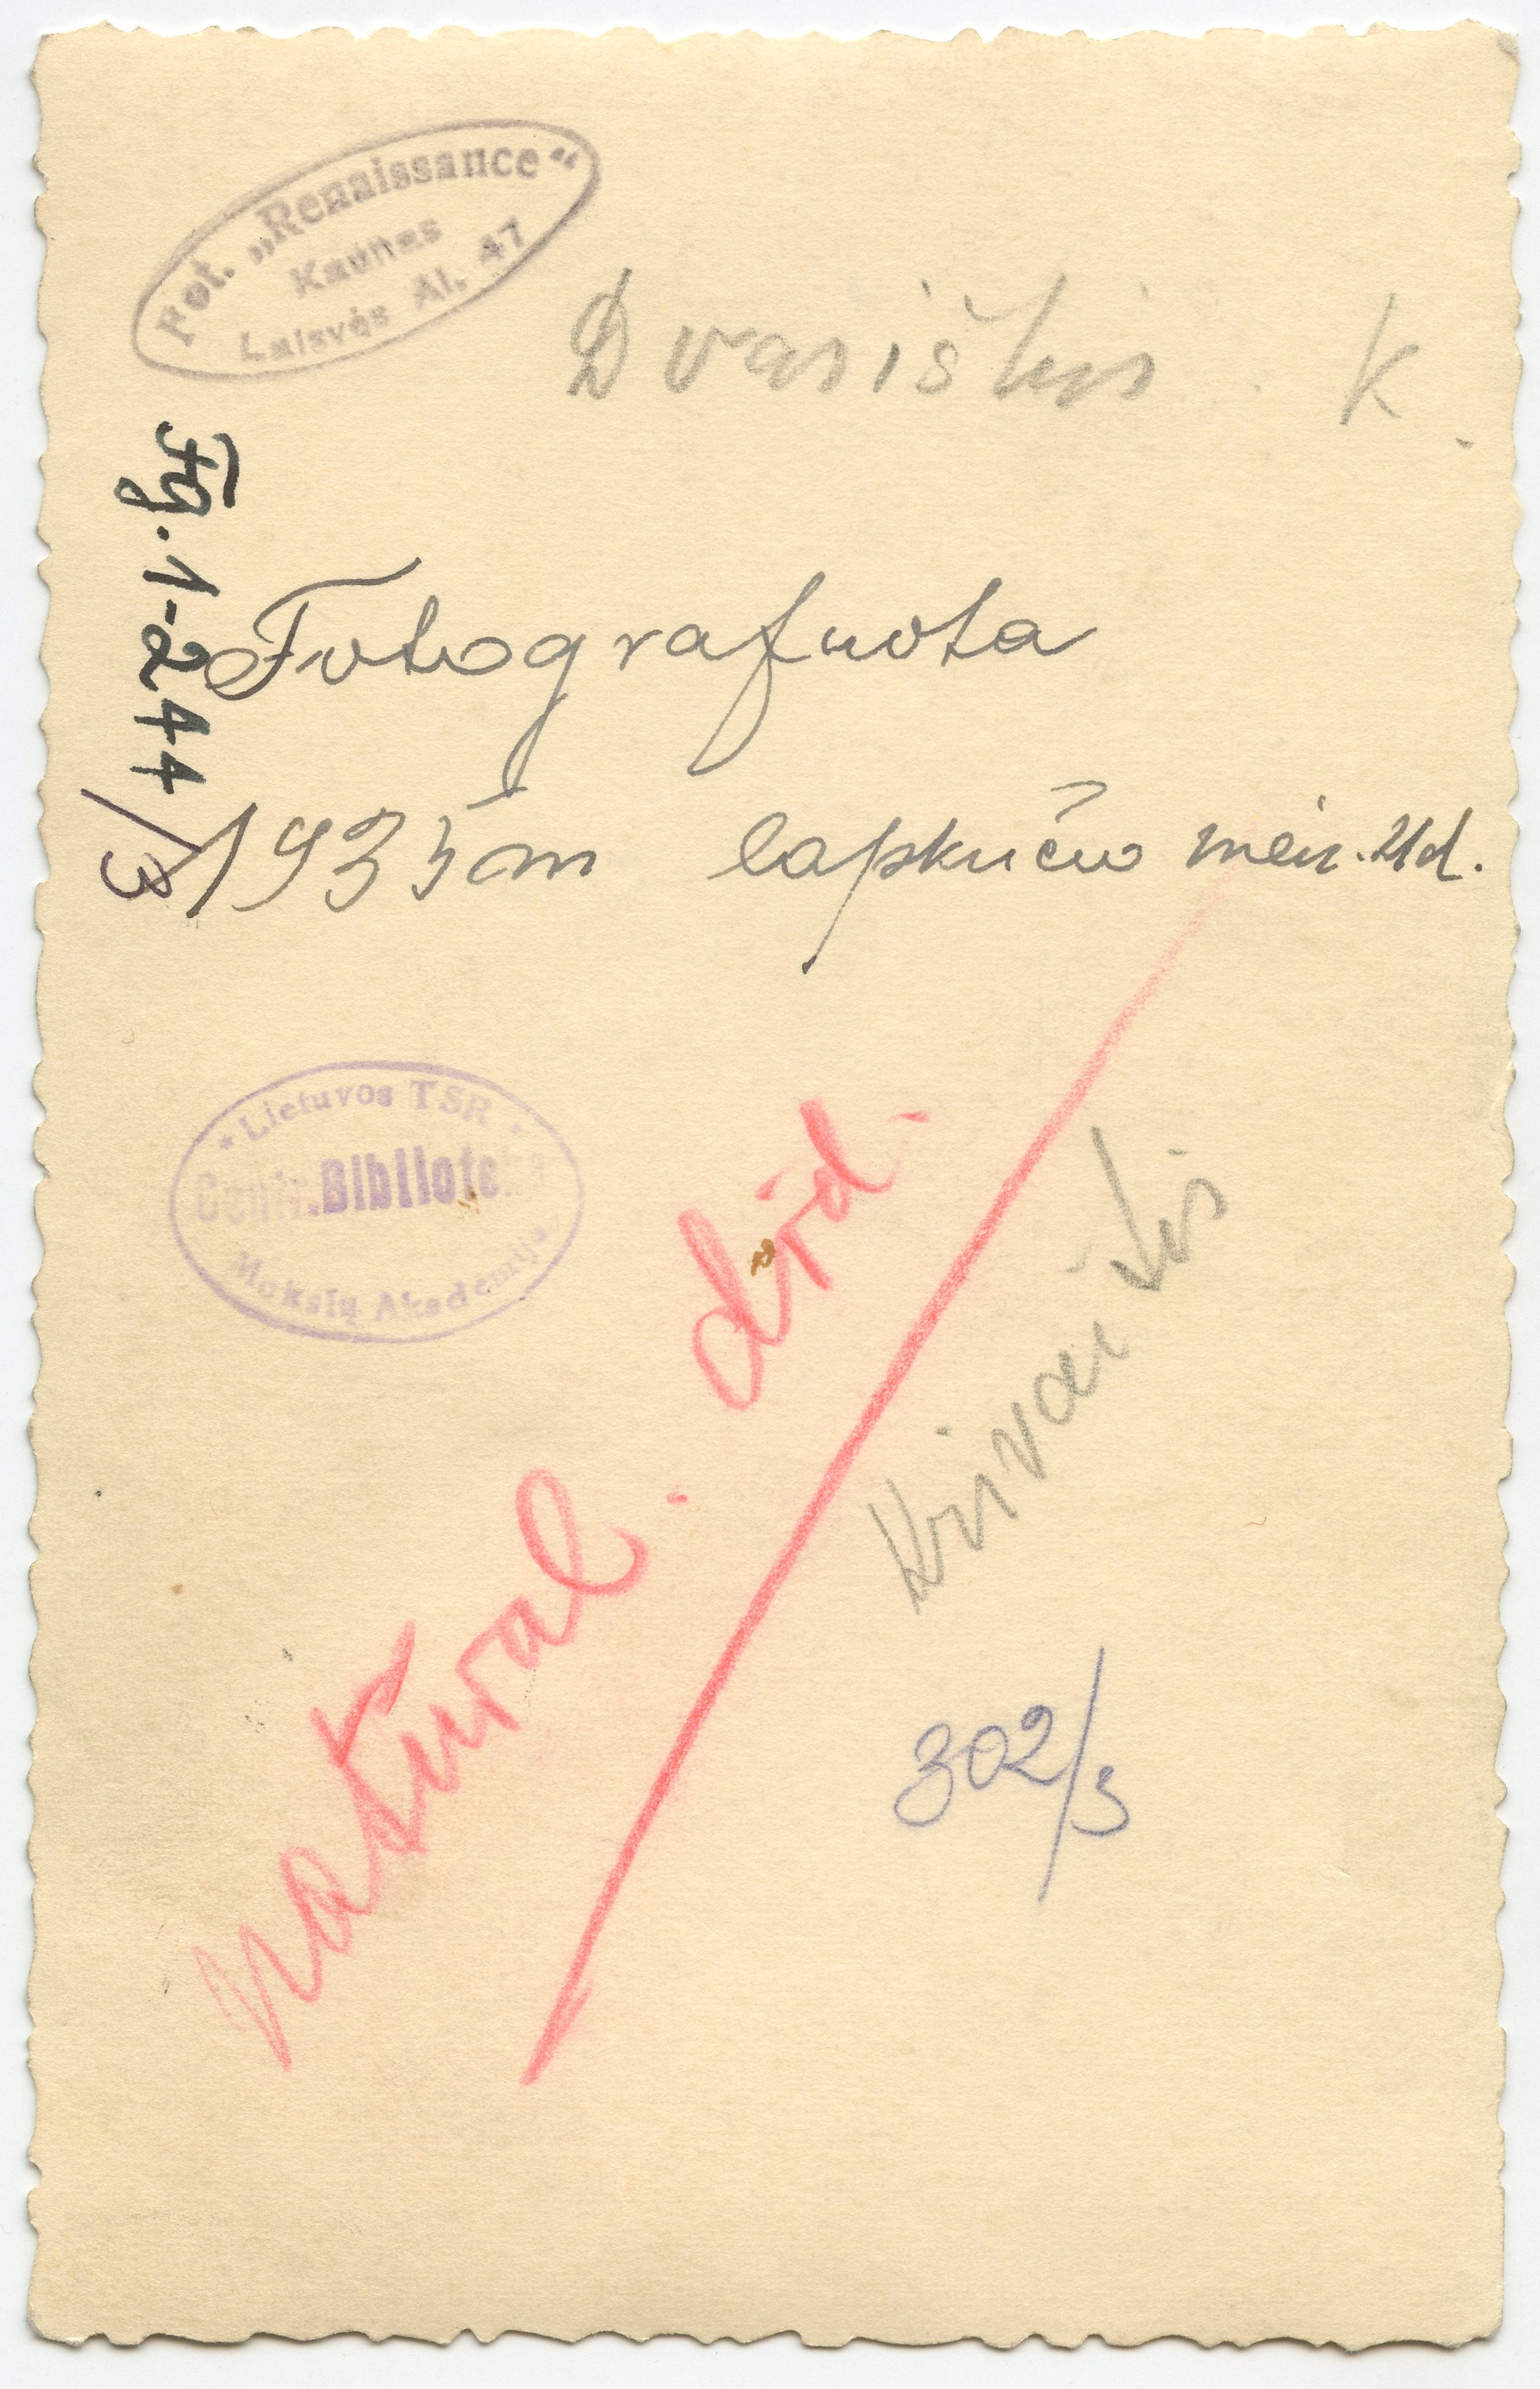 Fot. „Renaissance“
Kaunas
Laisvės Al. 47
Dvariškis K.
Fg. 1-244/3
Fotografuota
1935 m lapkučio mėn. 21 d.
* Lietuvos TSR *
Centr. Biblioteka
Mokslų Akademija
natural. dyd.
Krivaitis
302/3